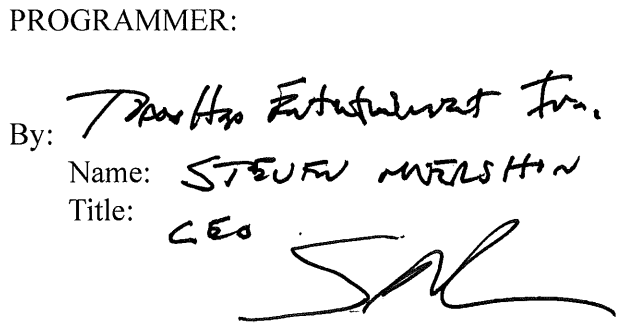 PROGRAMMER:
By: Entertainment Inc.
Name: STEVEN MUERSHON
Title:
CEO